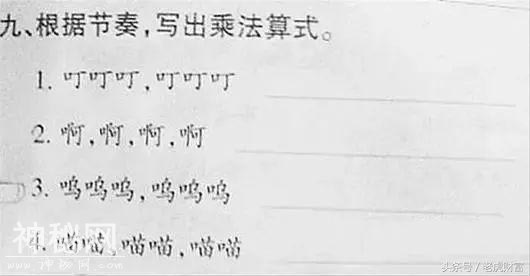 九、根据节奏,写出乘法算式。
1. 叮叮叮,叮叮叮
2. 啊,啊,啊,啊
3. 呜呜呜,呜呜呜
4. 喵喵,喵喵,喵喵
神秘网
头条号 / 老虎财富